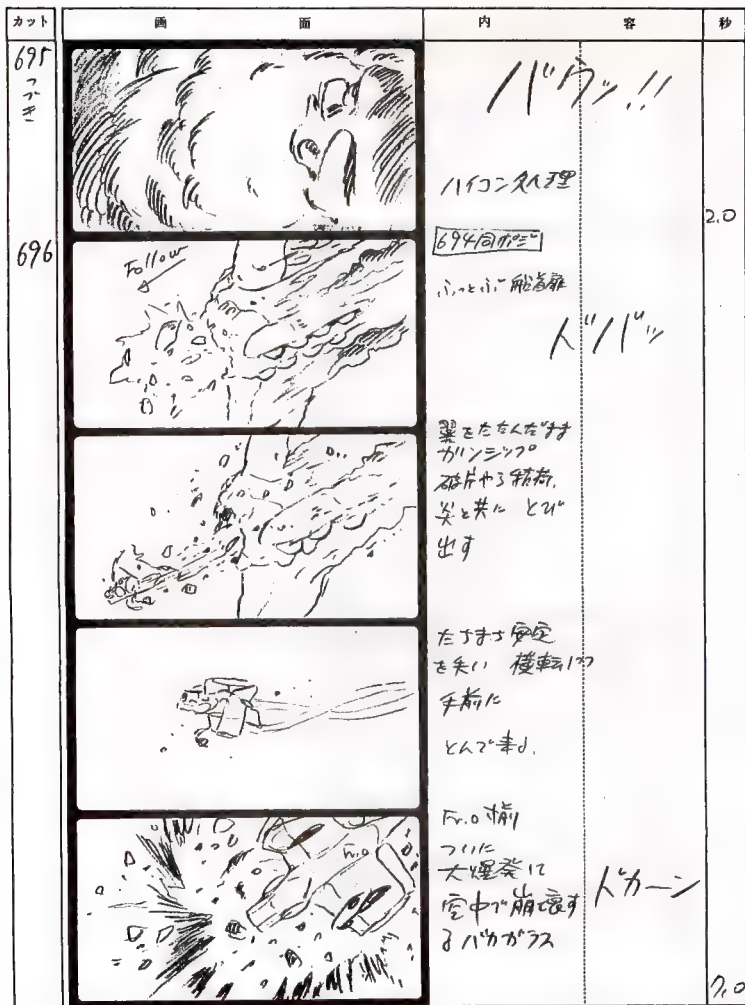 カット 画面 内容 秒
695
つづき
バウッ!!
ハイコン処理
2.0
696
694同ポジ
Follow
ふっとぶ船首扉
ドバッ
翼をたたんだまま
ガンシップ
破片やら積荷、
炎と共に とび
出す
たちまち安定
を失い 横転しつつ
手前に
とんで来る。
Fr.o寸前
ついに
大爆発して
空中で崩壊す
るバカガラス
Fr.o
ドカーン
7.0